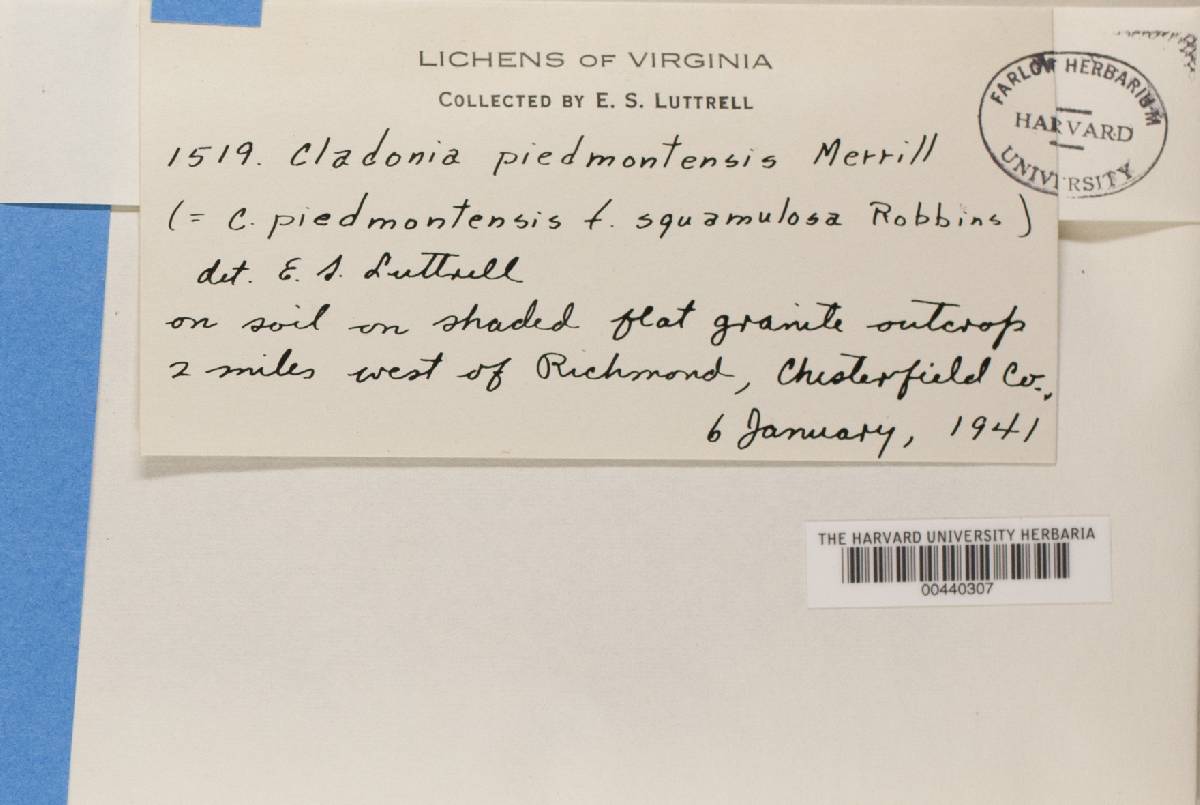 LICHENS OF VIRGINIA
COLLECTED BY E. S. LUTTRELL
1519. Cladonia piedmontensis Merrill
(= C. piedmontensis f. squamulosa Robbins)
det. E. S. Luttrell
on soil on shaded flat granite outcrop
2 miles west of Richmond, Chesterfield Co.,
6 January, 1941
FARLOW HERBARIUM
HARVARD
UNIVERSITY
THE HARVARD UNIVERSITY HERBARIA
00440307